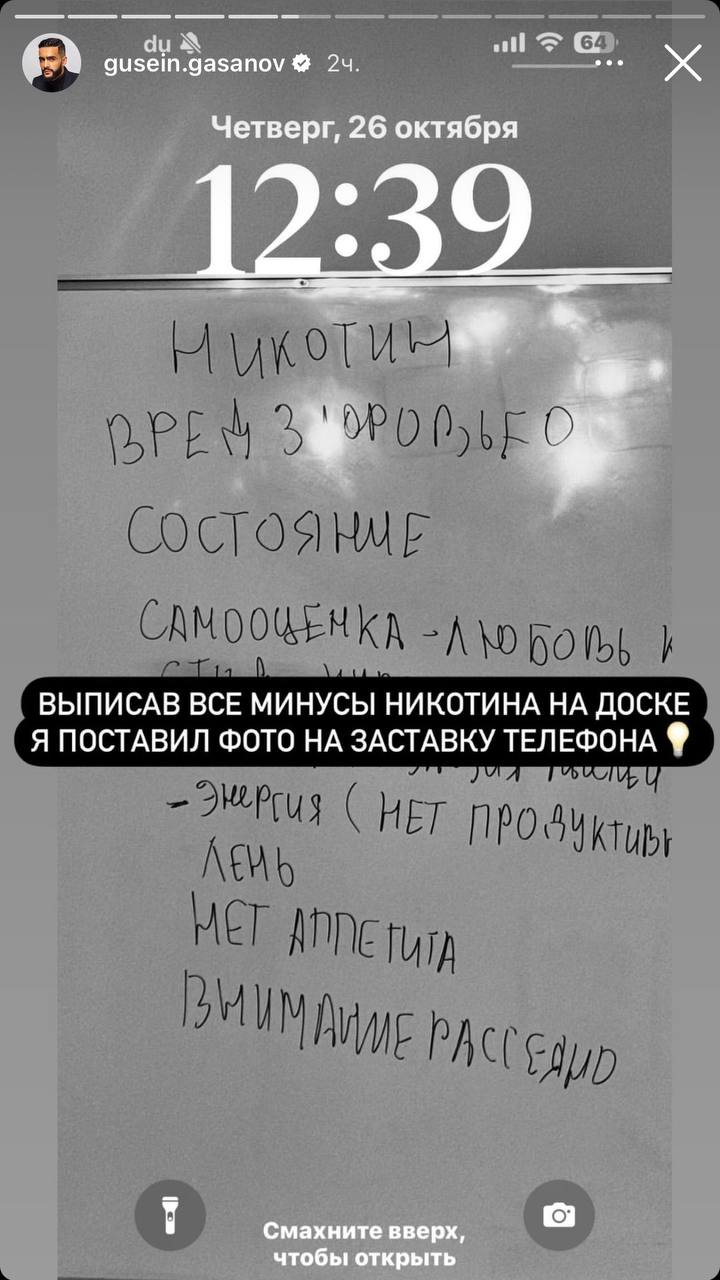 du 64
gusein.gasanov 2ч.
Четверг, 26 октября
12:39
НИКОТИН
ВРЕД ЗДОРОВЬЕО
СОСТОЯНИЕ
САМООЦЕНКА - ЛЮБОВЬ К
ВЫПИСАВ ВСЕ МИНУСЫ НИКОТИНА НА ДОСКЕ
Я ПОСТАВИЛ ФОТО НА ЗАСТАВКУ ТЕЛЕФОНА
- ЭНЕРГИЯ ( НЕТ ПРОДУКТИВН
ЛЕНЬ
НЕТ АППЕТИТА
ВНИМАНИЕ РАССЕЯНО
Смахните вверх,
чтобы открыть